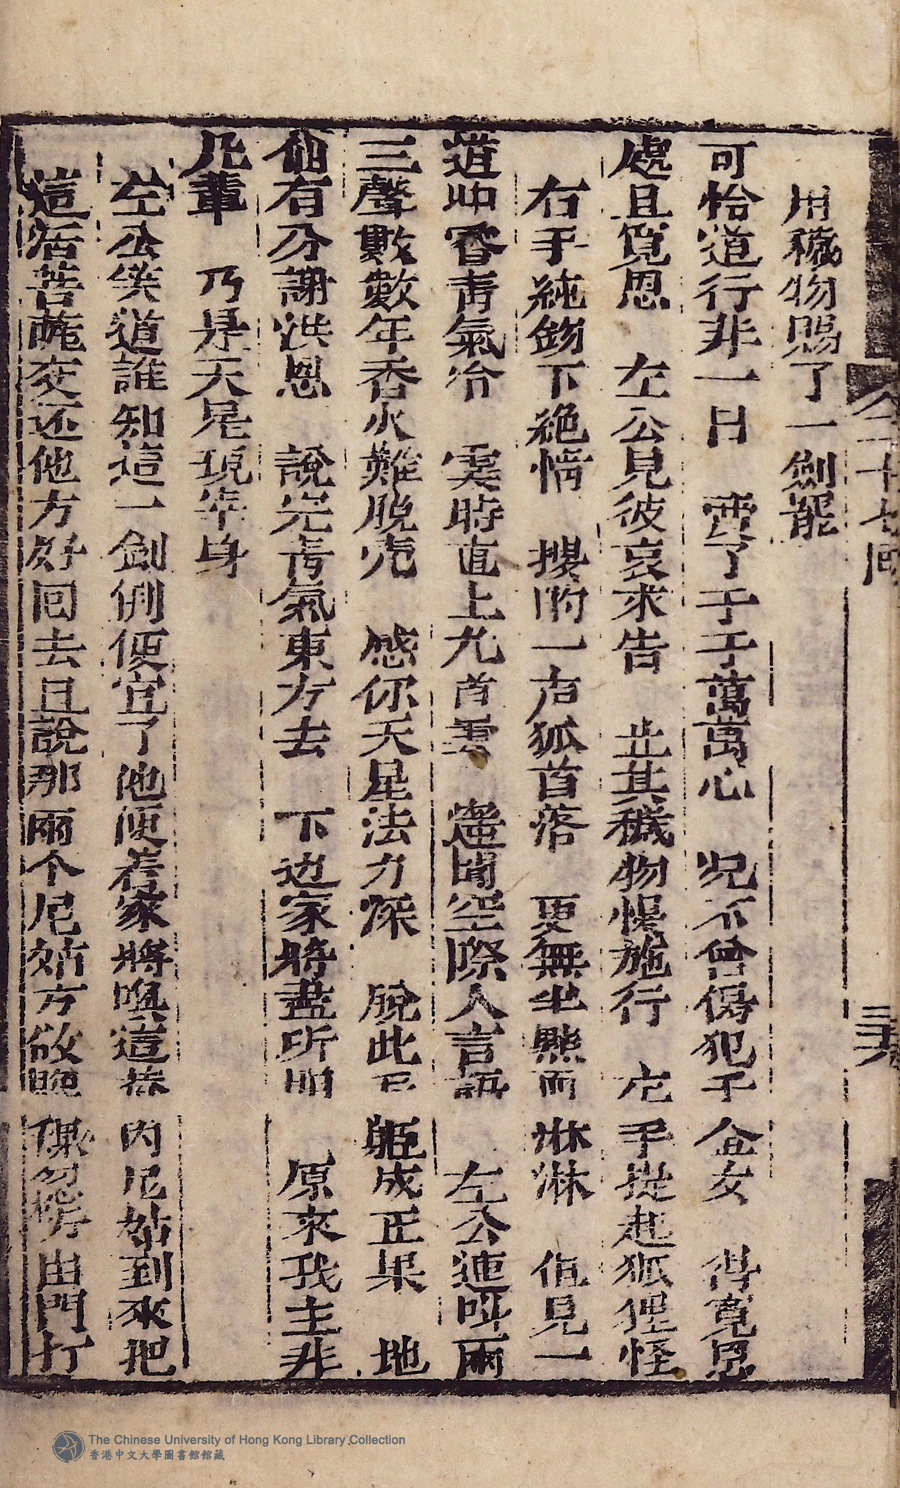 用穢物賜了一劍罷
可恰道行非一日　費了千千萬萬心　况不曾傷犯于金女　得寬恩
處且寬恩　左公見彼哀求告　止其穢物慢施行　左手提起狐狸怪
右手純鈎下絶情　摸的一声狐首落　更無半點血淋淋　但見一
道冲霄青氣冷　霎時直上九首雲　遥聞空際人言語　左公連叫兩
三聲數數年香火難脱壳　感你天星法力深　脱此皮軀成正果　地
個有分謝洪恩　說完青氣東方去　下边家將盡所明　原來我主非
凡輩　乃是天星現宰身
左公笑道誰知這一劍倒便宜了他便着家將喚這菴内尼姑到來把
這活菩薩交还他方好回去且說那兩个尼姑方欲睡　忽　由門打
全二十七回
三十六
The Chinese University of Hong Kong Library Collection
香港中文大學圖書館館藏